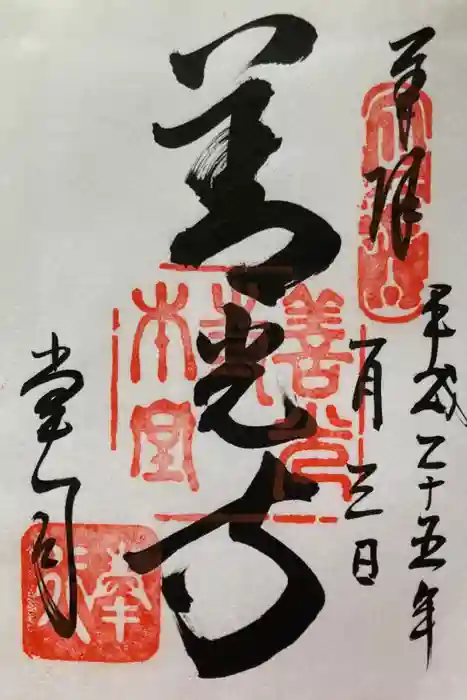 奉拝
平成二十五年
一月三日
善光寺
善光寺
本堂
堂司